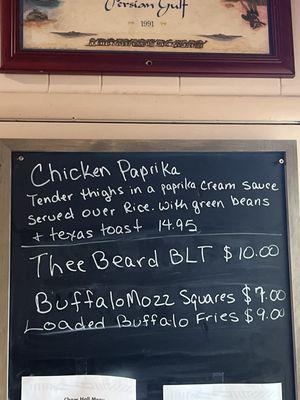 Persian Gulf
1991
Chicken Paprika
Tender thighs in a paprika cream sauce
served over Rice. with green beans
+ texas toast 14.95
Thee Beard BLT $10.00
Buffalo Mozz Squares $7.00
Loaded Buffalo Fries $9.00
Chow Hall Menu